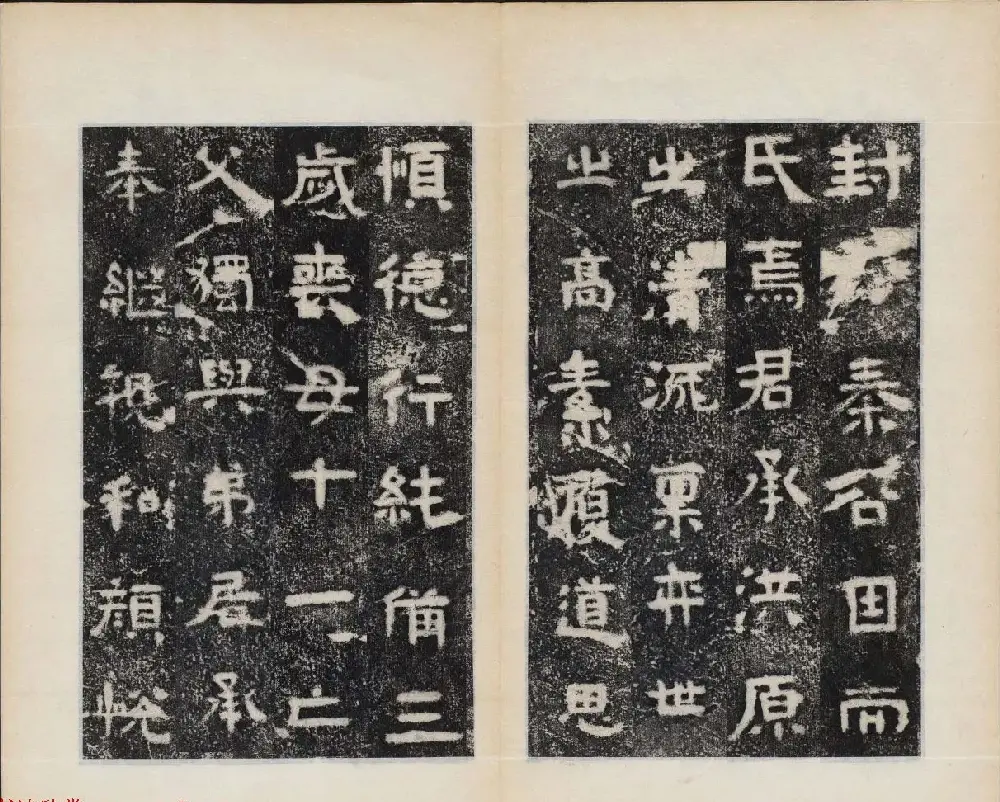 封秦谷因而
氏焉君承洪原
之清流稟弈世
之高素履道思
順德行純備三
歲喪母十二亡
父獨與弟居承
奉繼親和顏悅